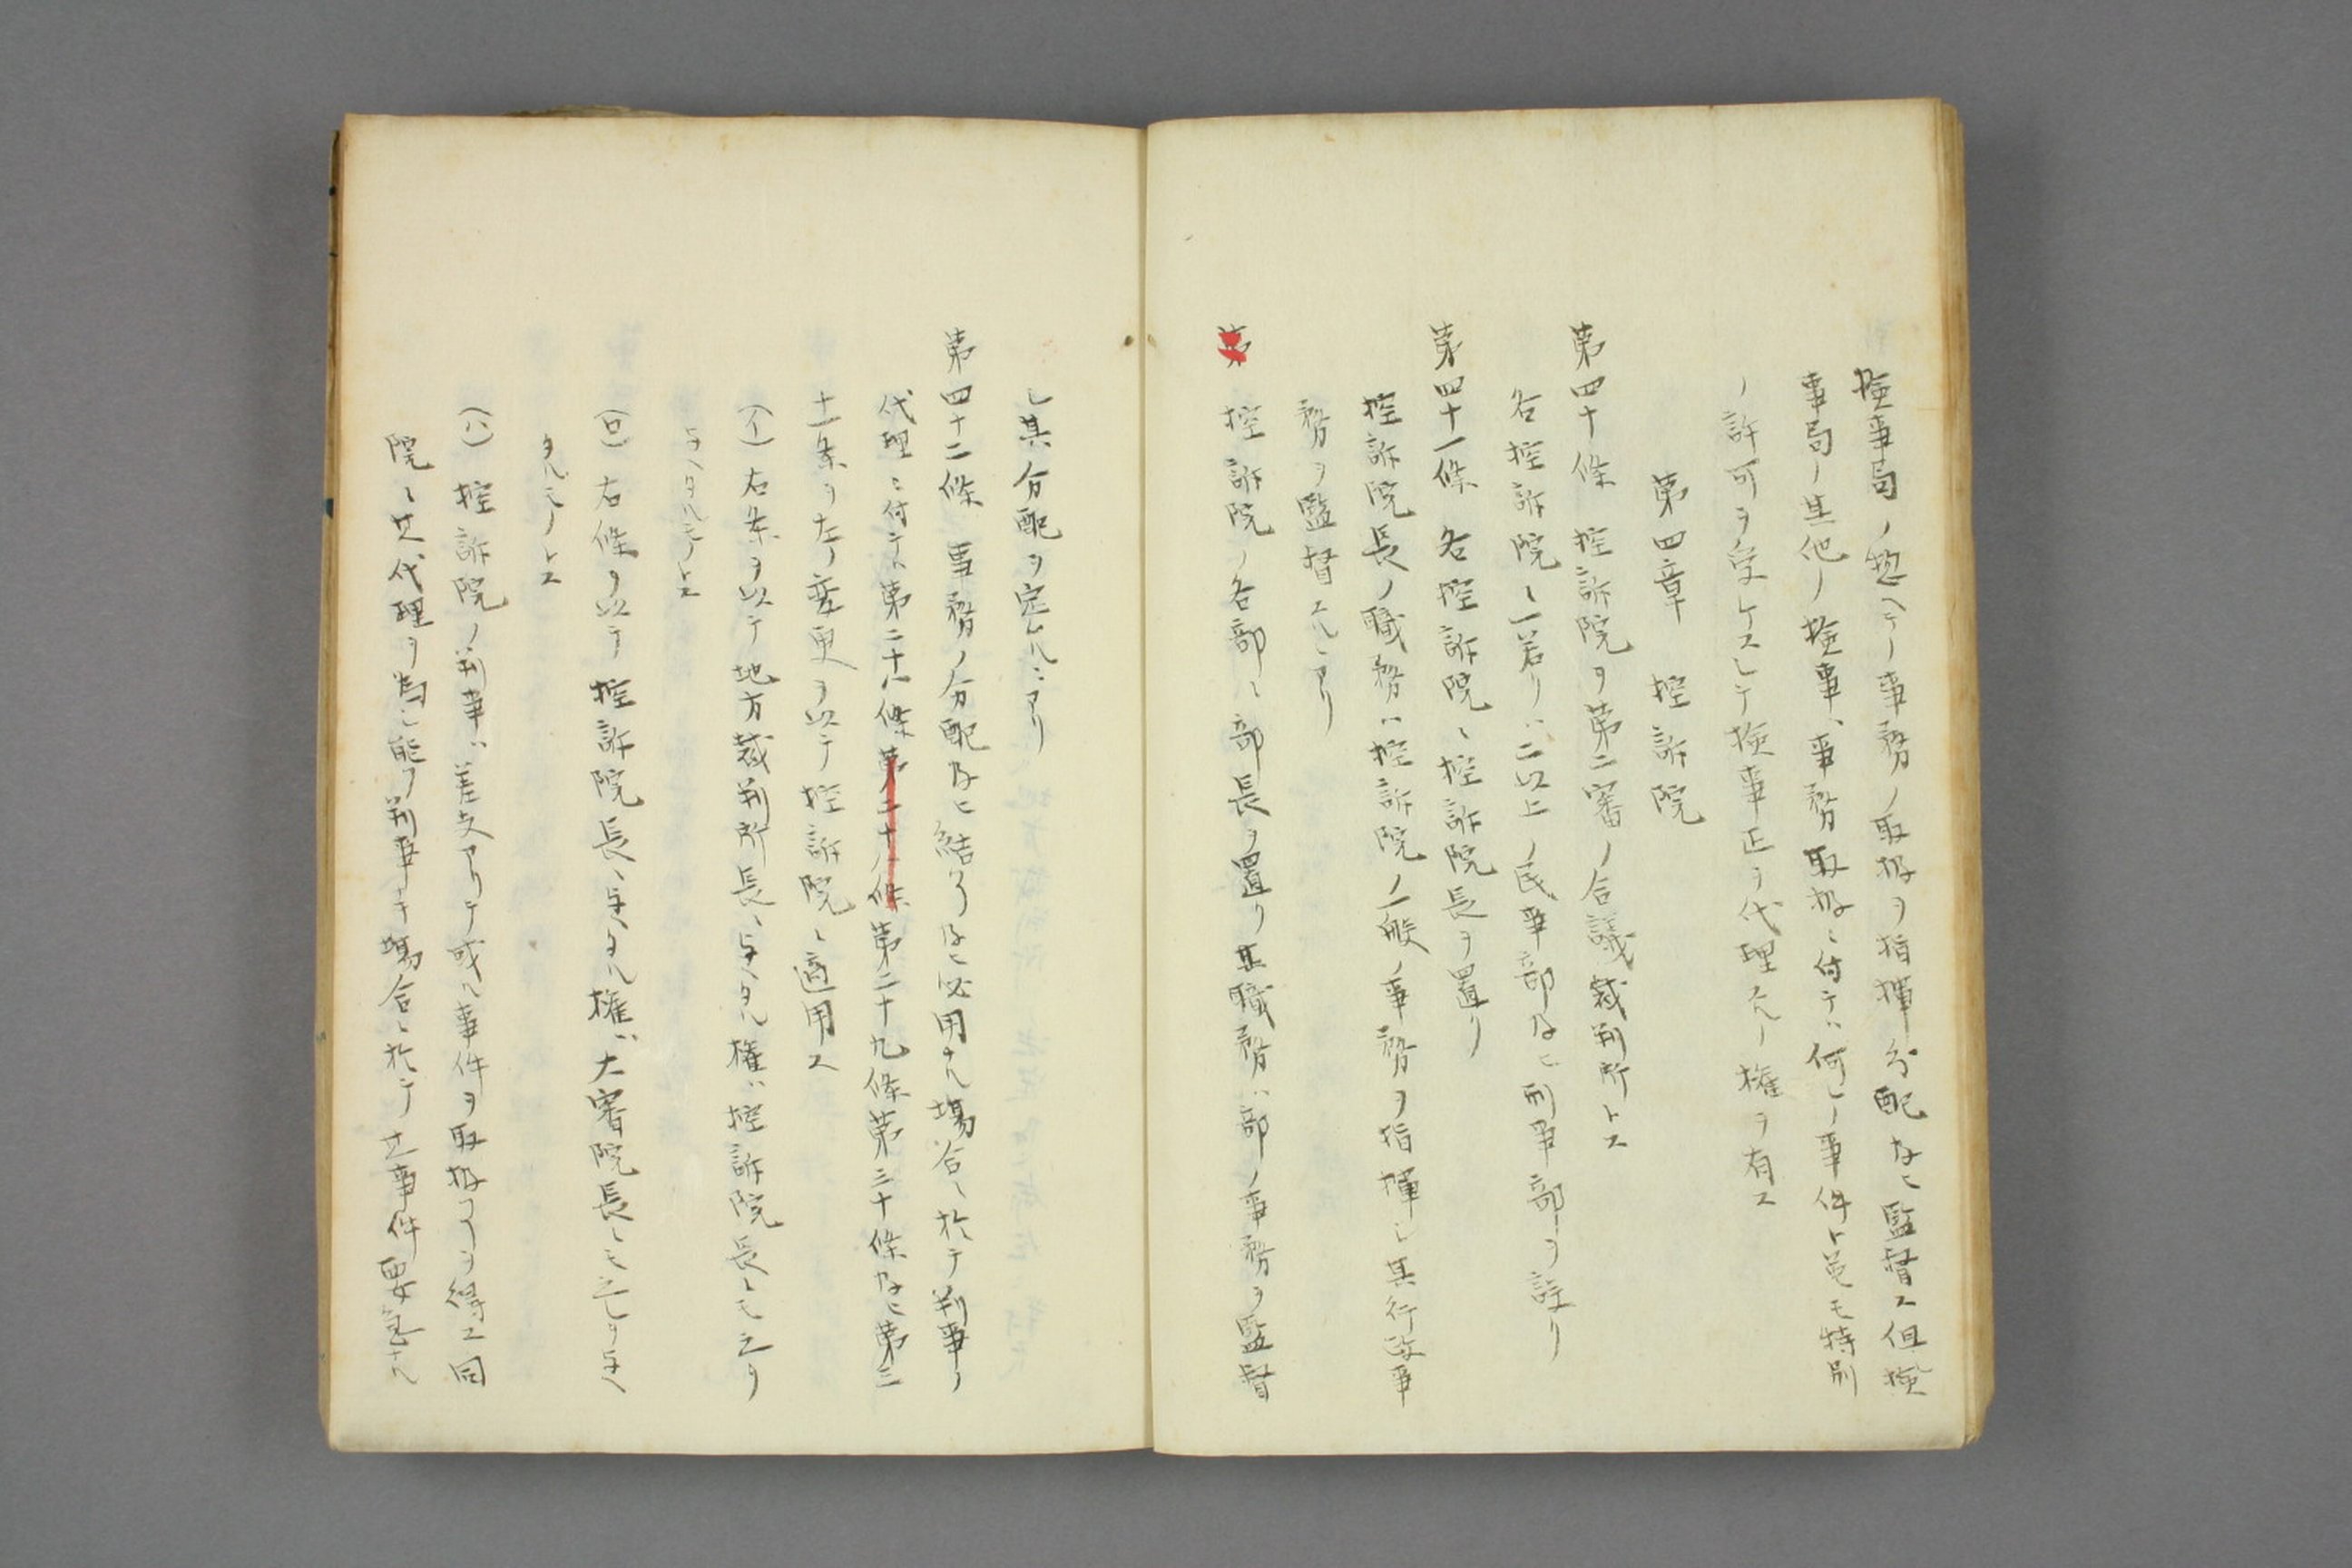 検事局ノ総ヘテノ事務ノ取扱ヲ指揮分配及ヒ監督ス但検
事局ノ其他ノ検事ハ事務取扱ニ付テハ何レノ事件ト雖モ特別
ノ許可ヲ受ケスシテ検事正ヲ代理スルノ権ヲ有ス
第四章 控訴院
第四十條 控訴院ヲ第二審ノ合議裁判所トス
各控訴院ニ一若クハ二以上ノ民事部及ヒ刑事部ヲ設ク
第四十一條 各控訴院ニ控訴院長ヲ置ク
控訴院長ノ職務ハ控訴院ノ一般ノ事務ヲ指揮シ其行政事
務ヲ監督スルニアリ
第 控訴院ノ各部ニ部長ヲ置ク其職務ハ部ノ事務ヲ監督
シ其分配ヲ定ムルニアリ
第四十二條 事務ノ分配及ヒ結了及ヒ必用ナル場合ニ於テ判事ノ
代理ニ付テハ第二十八條第二十八條第二十九條第三十條及ヒ第三
十一条ヲ左ノ変更ヲ以テ控訴院ニ適用ス
(イ) 右条ヲ以テ地方裁判所長ニ与ヘタル権ハ控訴院長ニモ之ヲ
与ヘタルモノトス
(ロ) 右條ヲ以テ控訴院長ニ与ヘタル権ハ大審院長ニモ之レヲ与ヘ
タルモノトス
(ハ) 控訴院ノ判事ハ差支アリテ或ル事件ヲ取扱フヲ得ス同
院ニ其代理ヲ為シ能フ判事ナキ場合ニ於テ其事件要急ナル